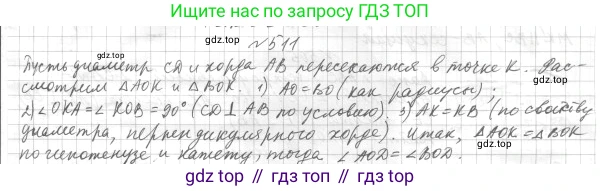 Ищите нас по запросу ГДЗ ТОП
№511
Пусть диаметр CD и хорда AB пересекаются в точке K. Рас-
смотрим ΔAOK и ΔBOK. 1) AO=BO (как радиусы);
2) ∠OKA=∠KOB=90° (CD⊥AB по условию). 3) AK=KB (по свойству
диаметра, перпендикулярного хорде). Итак, ΔAOK=ΔBOK
по гипотенузе и катету, тогда ∠AOD=∠BOD.
gdz.top
gdz.top
gdz.top
gdz.top // gdz.top // gdz.top